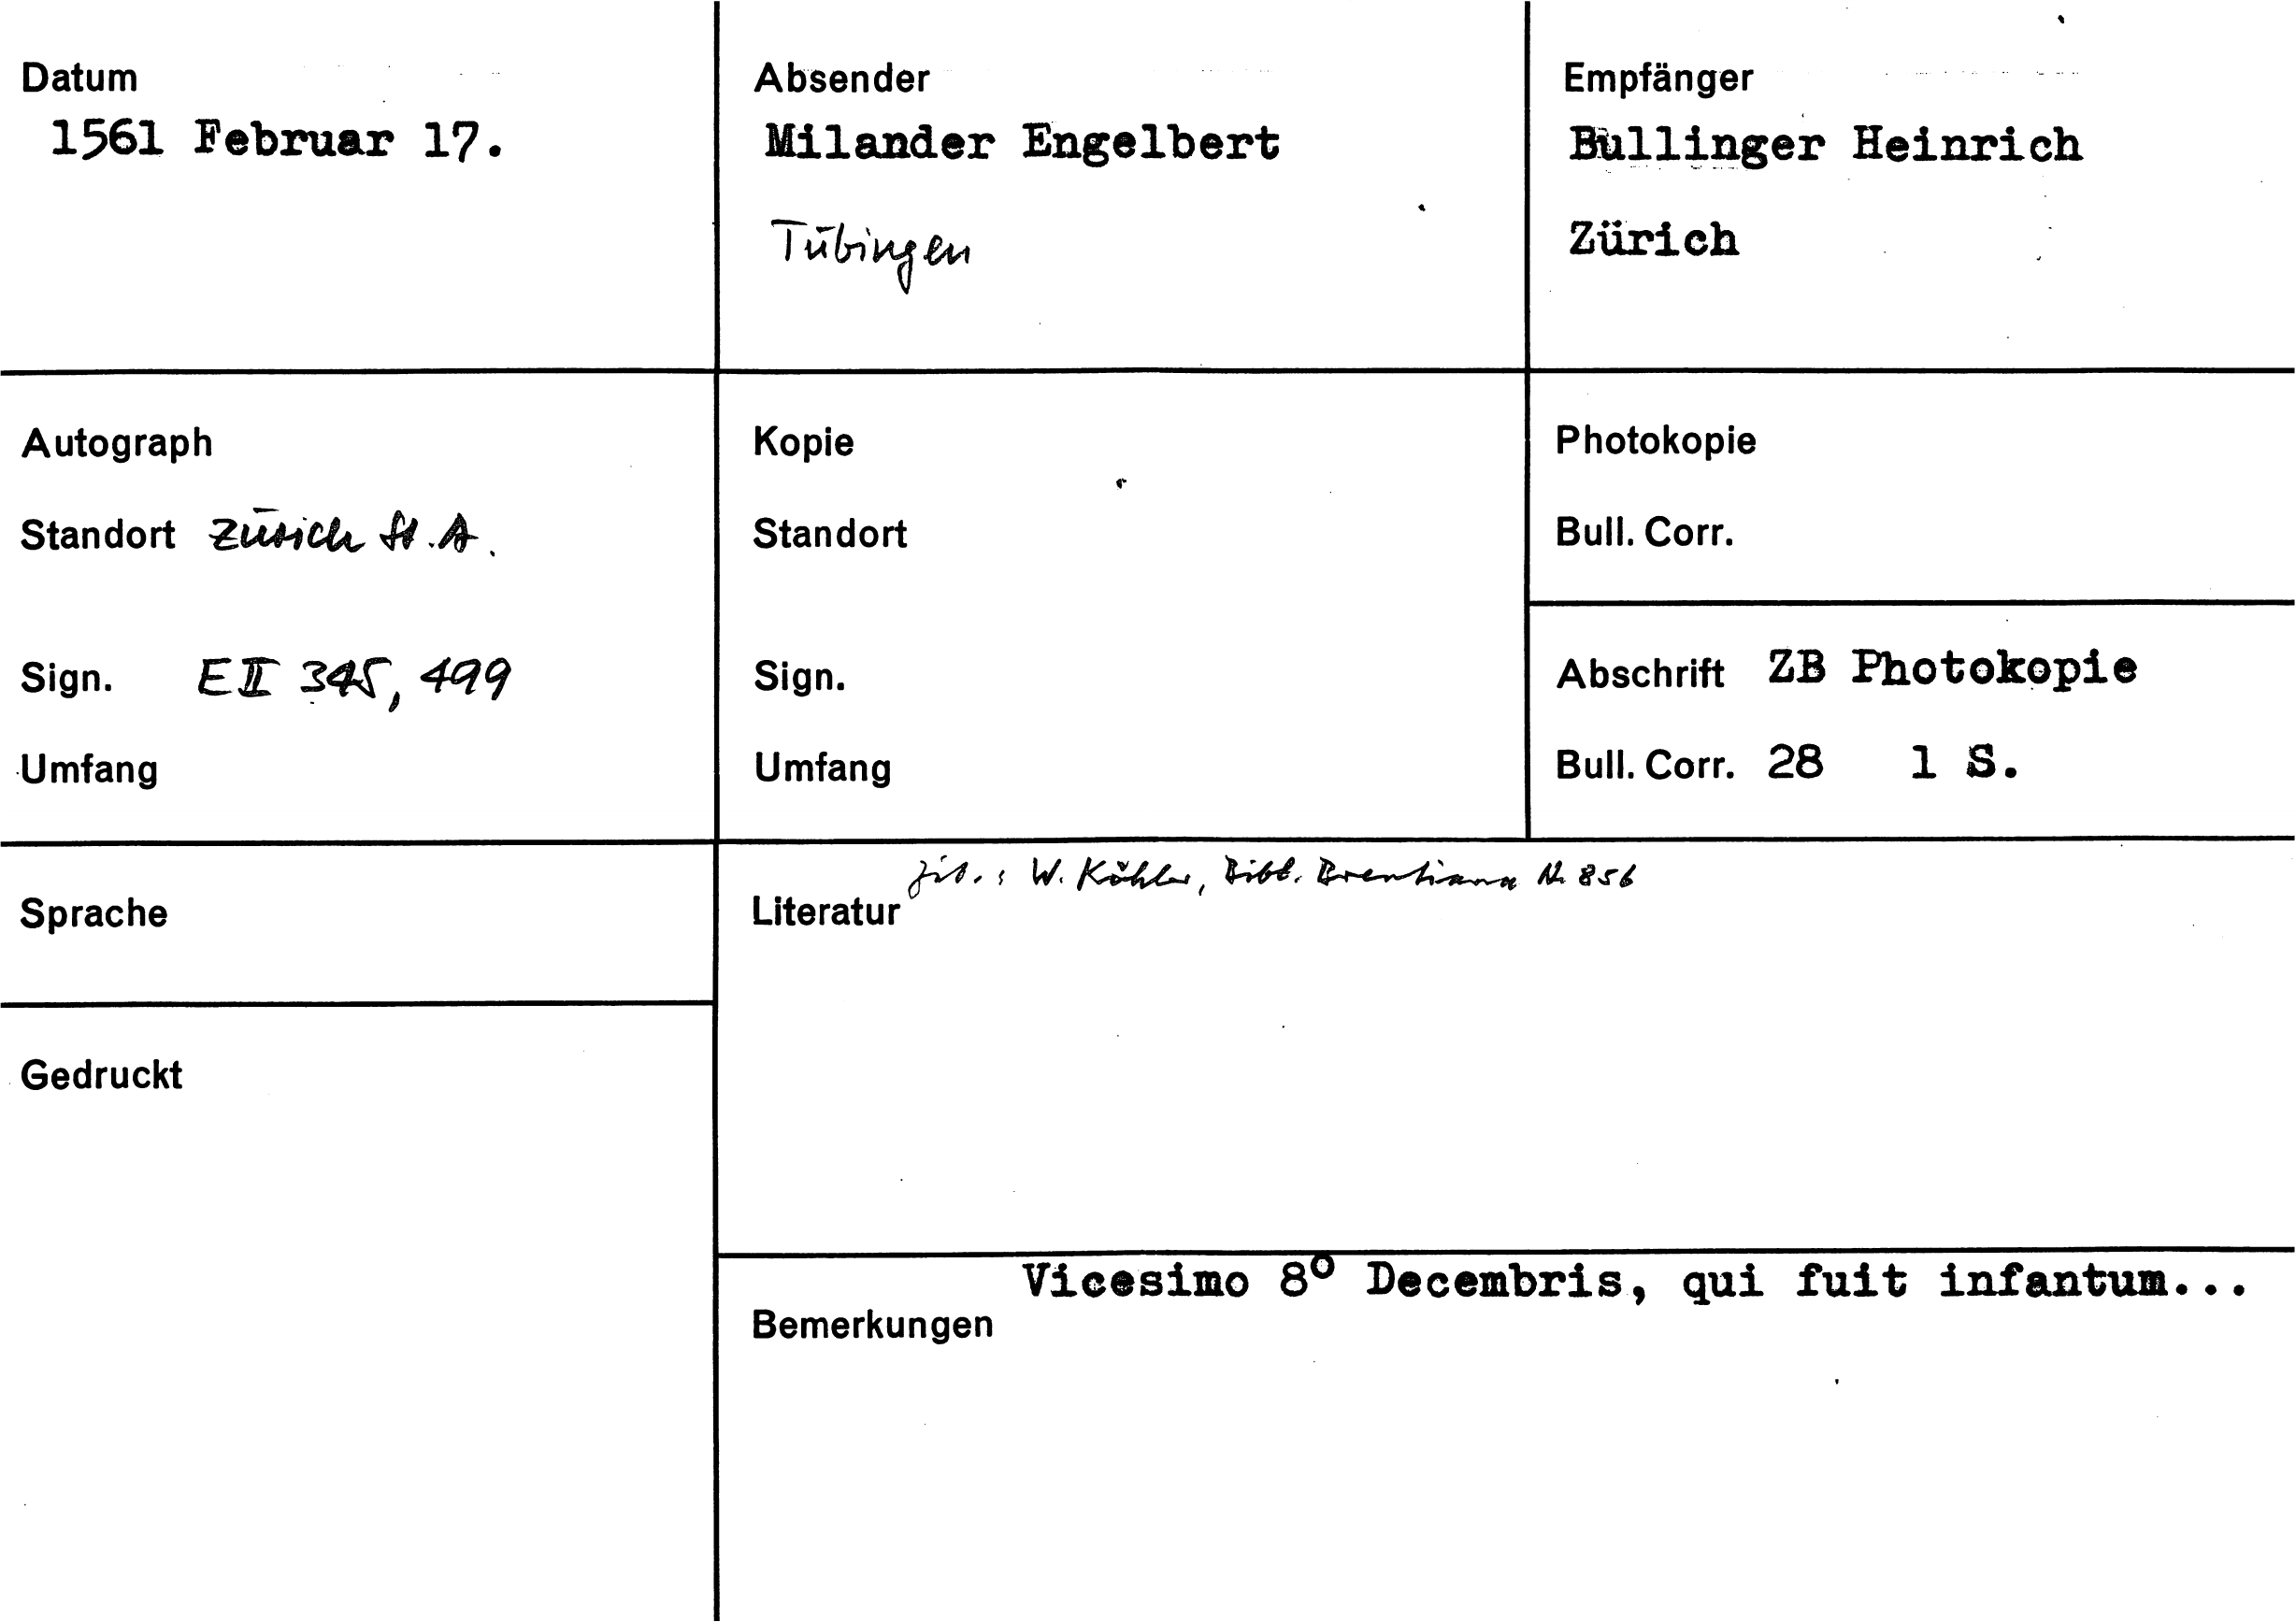 Datum
1561 Februar 17.
Absender
Milander Engelbert
Tübingen
Empfänger
Bullinger Heinrich
Zürich
Autograph
Standort Zürich St.A.
Sign. E II 345, 499
Umfang
Kopie
Standort
Sign.
Umfang
Photokopie
Bull. Corr.
Abschrift ZB Photokopie
Bull. Corr. 28 1 S.
Sprache
Gedruckt
zit.: W. Köhler, Bibl. Brentiana N. 856
Literatur
Vicesimo 8º Decembris, qui fuit infantum...
Bemerkungen